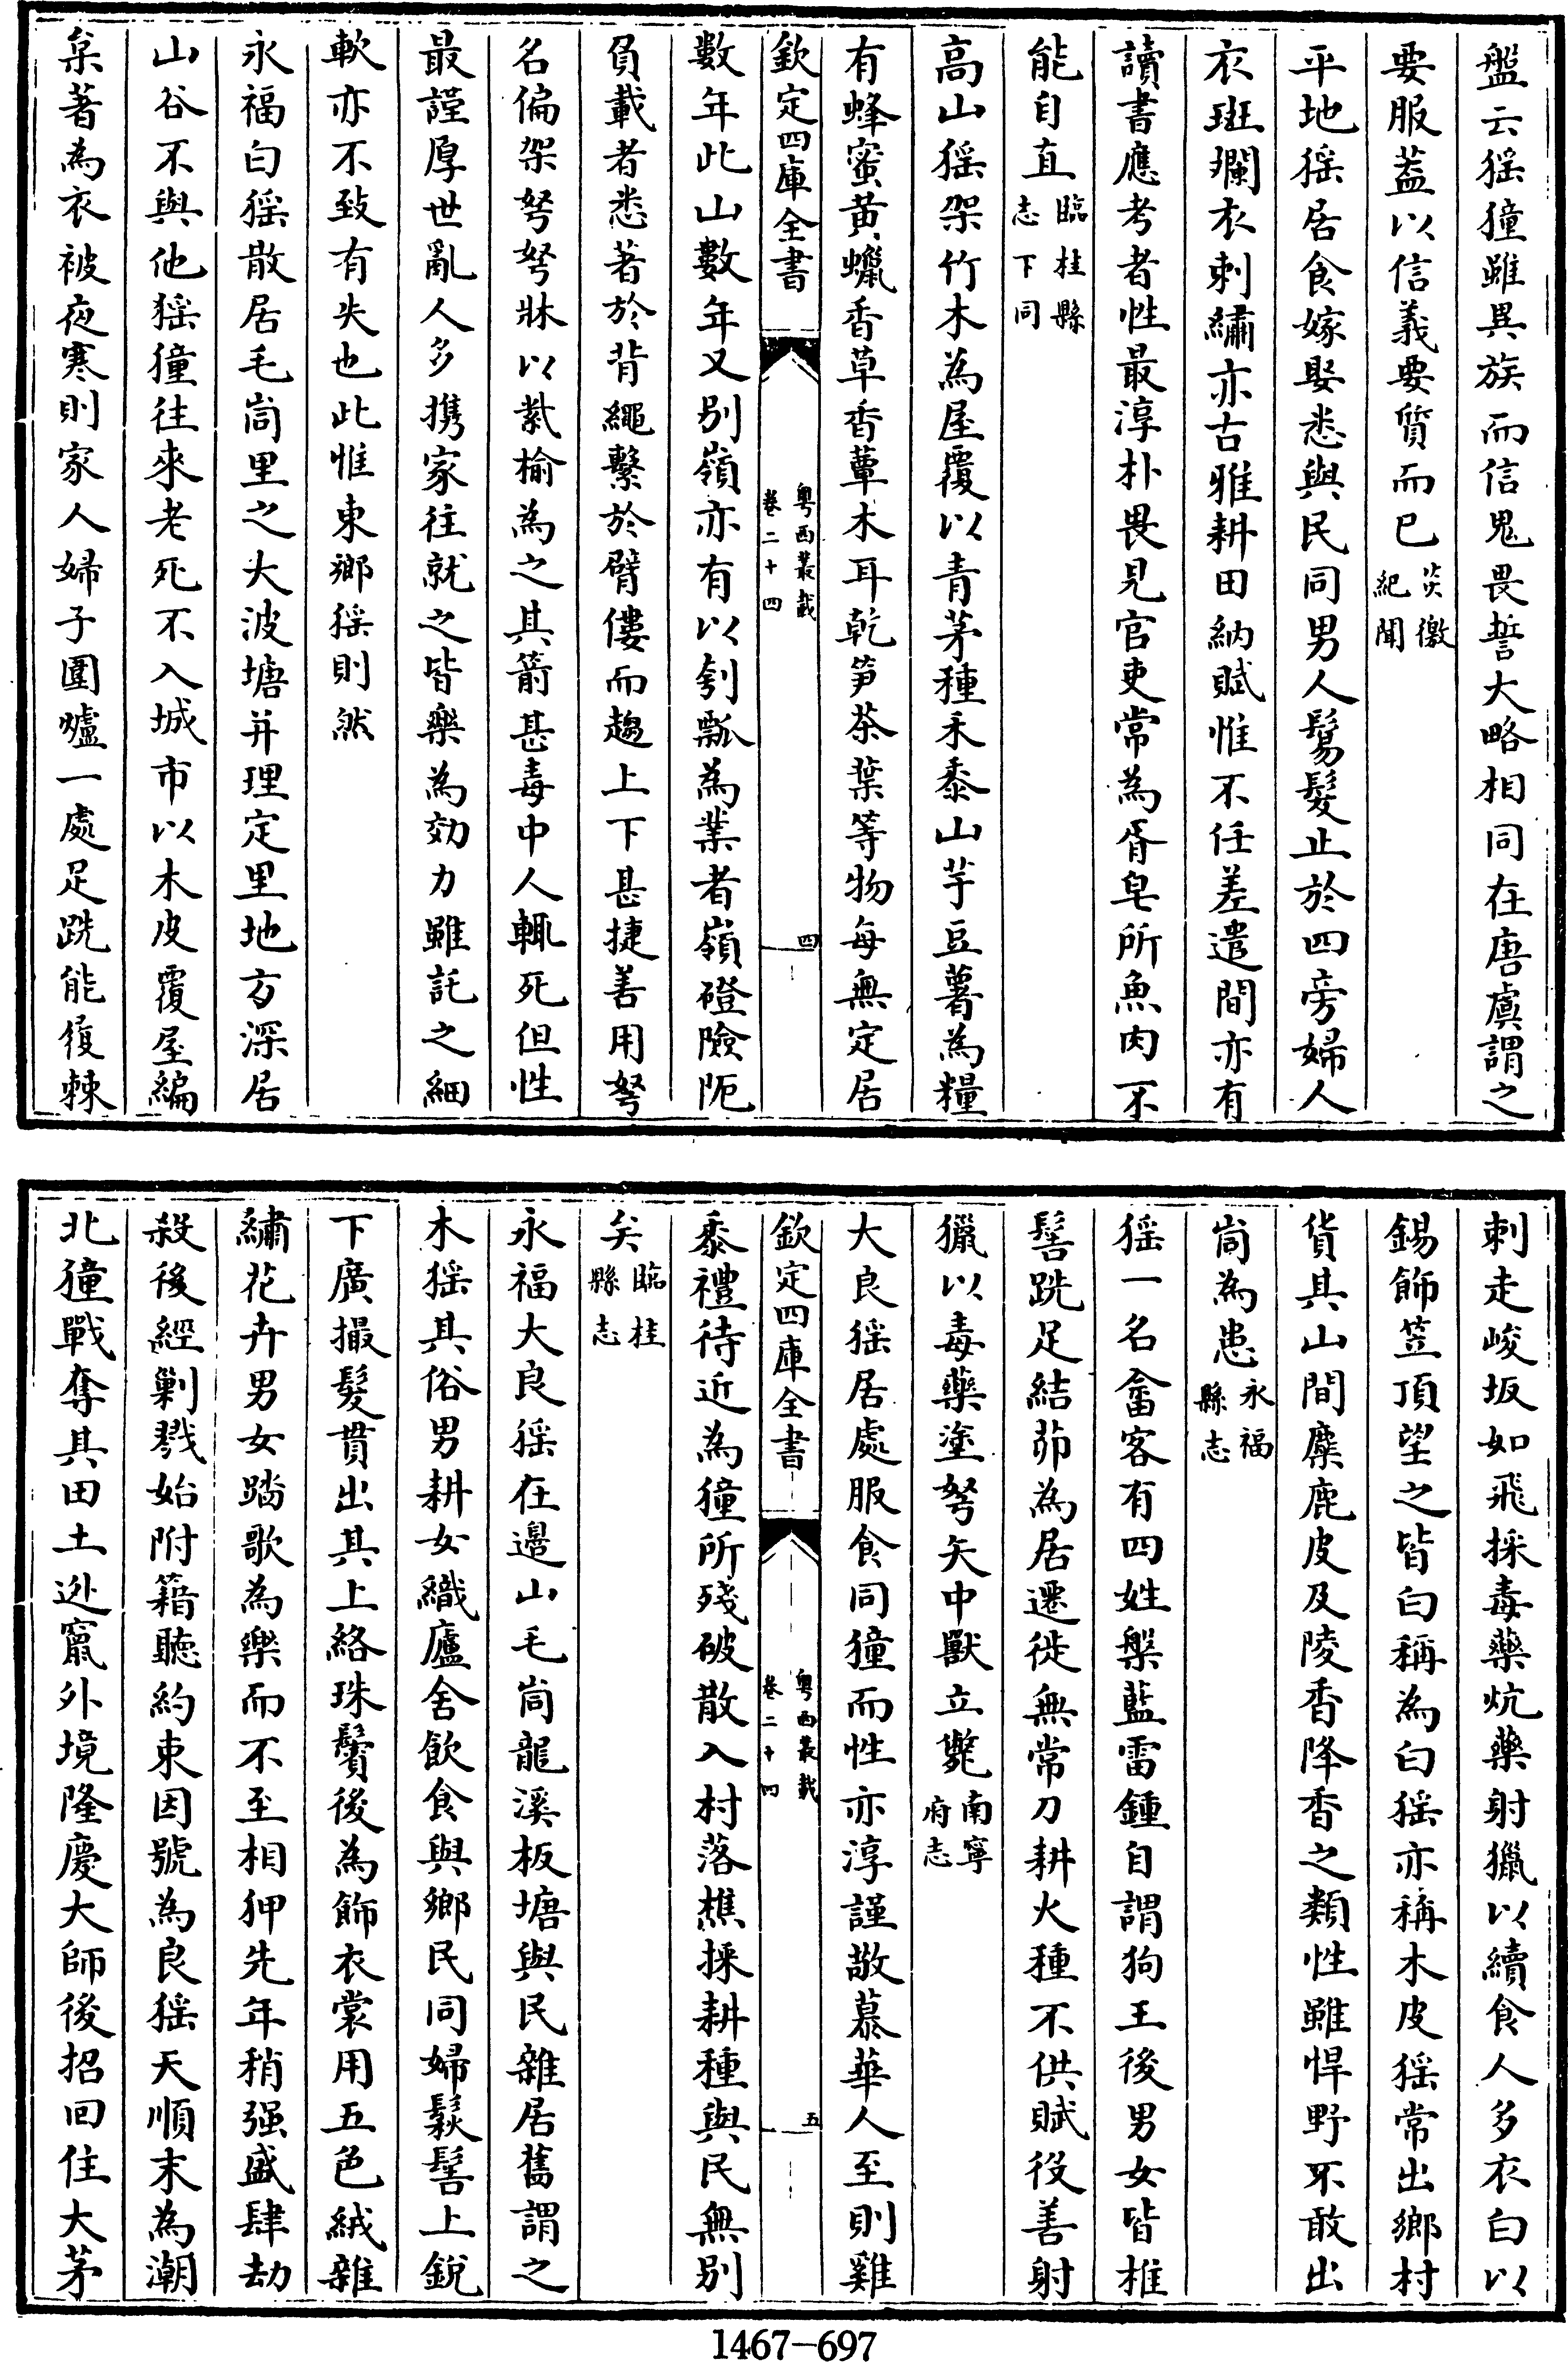 盤云猺獞雖異族而信鬼畏誓大略相同在唐虞謂之
要服葢以信義要質而已炎徼紀聞
平地猺居食嫁娶悉與民同男人鬄髮止於四旁婦人
衣斑斕衣刺繡亦古雅耕田納賦惟不任差遣間亦有
讀書應考者性最淳朴畏見官吏常為胥皂所魚肉不
能自直臨桂縣志下同
高山猺架竹木為屋覆以青茅種禾黍山芋豆薯為糧
有蜂蜜黃蠟香草香蕈木耳乾笋茶葉等物每無定居
欽定四庫全書
粵西叢載
卷二十四
四
數年此山數年又別嶺亦有以刳瓢為業者嶺磴險阨
負載者悉著於背繩繫於臂僂而趨上下甚捷善用弩
名偏架弩弩牀以紫榆為之其箭甚毒中人輒死但性
最謹厚世亂人多携家往就之皆樂為効力雖託之細
軟亦不致有失也此惟東鄉猺則然
永福白猺散居毛峝里之大波塘并理定里地方深居
山谷不與他猺獞往來老死不入城市以木皮覆屋編
枲著為衣被夜寒則家人婦子圍爐一處足跣能履棘
刺走峻坂如飛採毒藥炕藥射獵以續食人多衣白以
錫飾笠頂望之皆白稱為白猺亦稱木皮猺常出鄉村
貨其山間麋鹿皮及陵香降香之類性雖悍野不敢出
峝為患永福縣志
猺一名畬客有四姓槃藍雷鍾自謂狗王後男女皆椎
髻跣足結茆為居遷徙無常刀耕火種不供賦役善射
獵以毒藥塗弩矢中獸立斃南寧府志
大良猺居處服食同獞而性亦淳謹敬慕華人至則雞
欽定四庫全書
粵西叢載
卷二十四
五
黍禮待近為獞所殘破散入村落樵採耕種與民無別
矣臨桂縣志
永福大良猺在邉山毛峝龍溪板塘與民雜居舊謂之
木猺其俗男耕女織廬舍飲食與鄉民同婦鬏髻上銳
下廣撮髮貫出其上絡珠鬢後為飾衣裳用五色絨雜
繡花卉男女踏歌為樂而不至相狎先年稍强盛肆劫
殺後經剿戮始附籍聽約束因號為良猺天順末為潮
北獞戰奪其田土迯竄外境隆慶大師後招回住大茅
1467-697